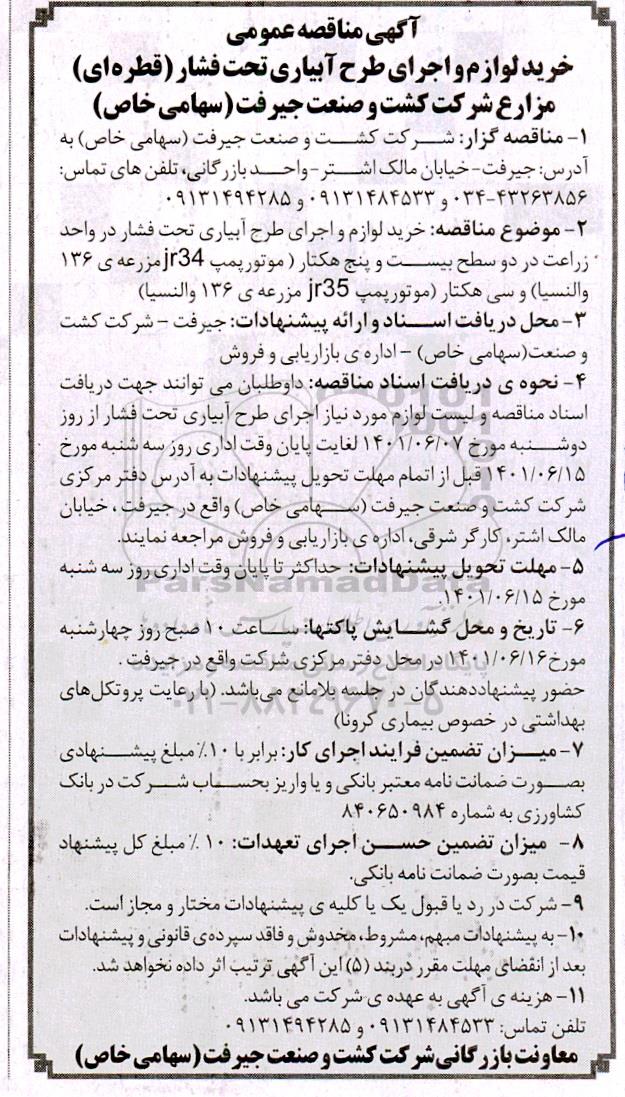 آگهی مناقصه عمومی
خرید لوازم و اجرای طرح آبیاری تحت فشار (قطره‌ای)
مزارع شرکت کشت و صنعت جیرفت (سهامی خاص)
۱- مناقصه گزار: شرکت کشت و صنعت جیرفت (سهامی خاص) به
آدرس: جیرفت- خیابان مالک اشتر- واحد بازرگانی، تلفن های تماس:
۰۳۴-۴۳۲۶۳۸۵۶ و ۰۹۱۳۱۴۸۴۵۳۳ و ۰۹۱۳۱۴۹۴۲۸۵
۲- موضوع مناقصه: خرید لوازم و اجرای طرح آبیاری تحت فشار در واحد
زراعت در دو سطح بیست و پنج هکتار ( موتورپمپ jr34 مزرعه ی ۱۳۶
والنسیا) و سی هکتار (موتورپمپ jr35 مزرعه ی ۱۳۶ والنسیا)
۳- محل دریافت اسناد و ارائه پیشنهادات: جیرفت - شرکت کشت
و صنعت(سهامی خاص) - اداره ی بازاریابی و فروش
۴- نحوه ی دریافت اسناد مناقصه: داوطلبان می توانند جهت دریافت
اسناد مناقصه و لیست لوازم مورد نیاز اجرای طرح آبیاری تحت فشار از روز
دوشنبه مورخ ۱۴۰۱/۰۶/۰۷ لغایت پایان وقت اداری روز سه شنبه مورخ
۱۴۰۱/۰۶/۱۵ قبل از اتمام مهلت تحویل پیشنهادات به آدرس دفتر مرکزی
شرکت کشت و صنعت جیرفت (سهامی خاص) واقع در جیرفت ، خیابان
مالک اشتر، کارگر شرقی، اداره ی بازاریابی و فروش مراجعه نمایند.
۵- مهلت تحویل پیشنهادات: حداکثر تا پایان وقت اداری روز سه شنبه
مورخ ۱۴۰۱/۰۶/۱۵.
ParsNamadData
۶- تاریخ و محل گشایش پاکتها: ساعت ۱۰ صبح روز چهارشنبه
مورخ ۱۴۰۱/۰۶/۱۶ در محل دفتر مرکزی شرکت واقع در جیرفت .
حضور پیشنهاددهندگان در جلسه بلامانع می‌باشد. (با رعایت پروتکل‌های
بهداشتی در خصوص بیماری کرونا)
۰۲۱-۸۸۳۴۹۶۷۰-۵
۷- میزان تضمین فرایند اجرای کار: برابر با ۱۰٪ مبلغ پیشنهادی
بصورت ضمانت نامه معتبر بانکی و یا واریز بحساب شرکت در بانک
کشاورزی به شماره ۸۴۰۶۵۰۹۸۴
۸- میزان تضمین حسن اجرای تعهدات: ۱۰ ٪ مبلغ کل پیشنهاد
قیمت بصورت ضمانت نامه بانکی.
۹- شرکت در رد یا قبول یک یا کلیه ی پیشنهادات مختار و مجاز است.
۱۰- به پیشنهادات مبهم، مشروط، مخدوش و فاقد سپرده‌ی قانونی و پیشنهادات
بعد از انقضای مهلت مقرر دربند (۵) این آگهی ترتیب اثر داده نخواهد شد.
۱۱- هزینه ی آگهی به عهده ی شرکت می باشد.
تلفن تماس: ۰۹۱۳۱۴۸۴۵۳۳ و ۰۹۱۳۱۴۹۴۲۸۵
معاونت بازرگانی شرکت کشت و صنعت جیرفت (سهامی خاص)